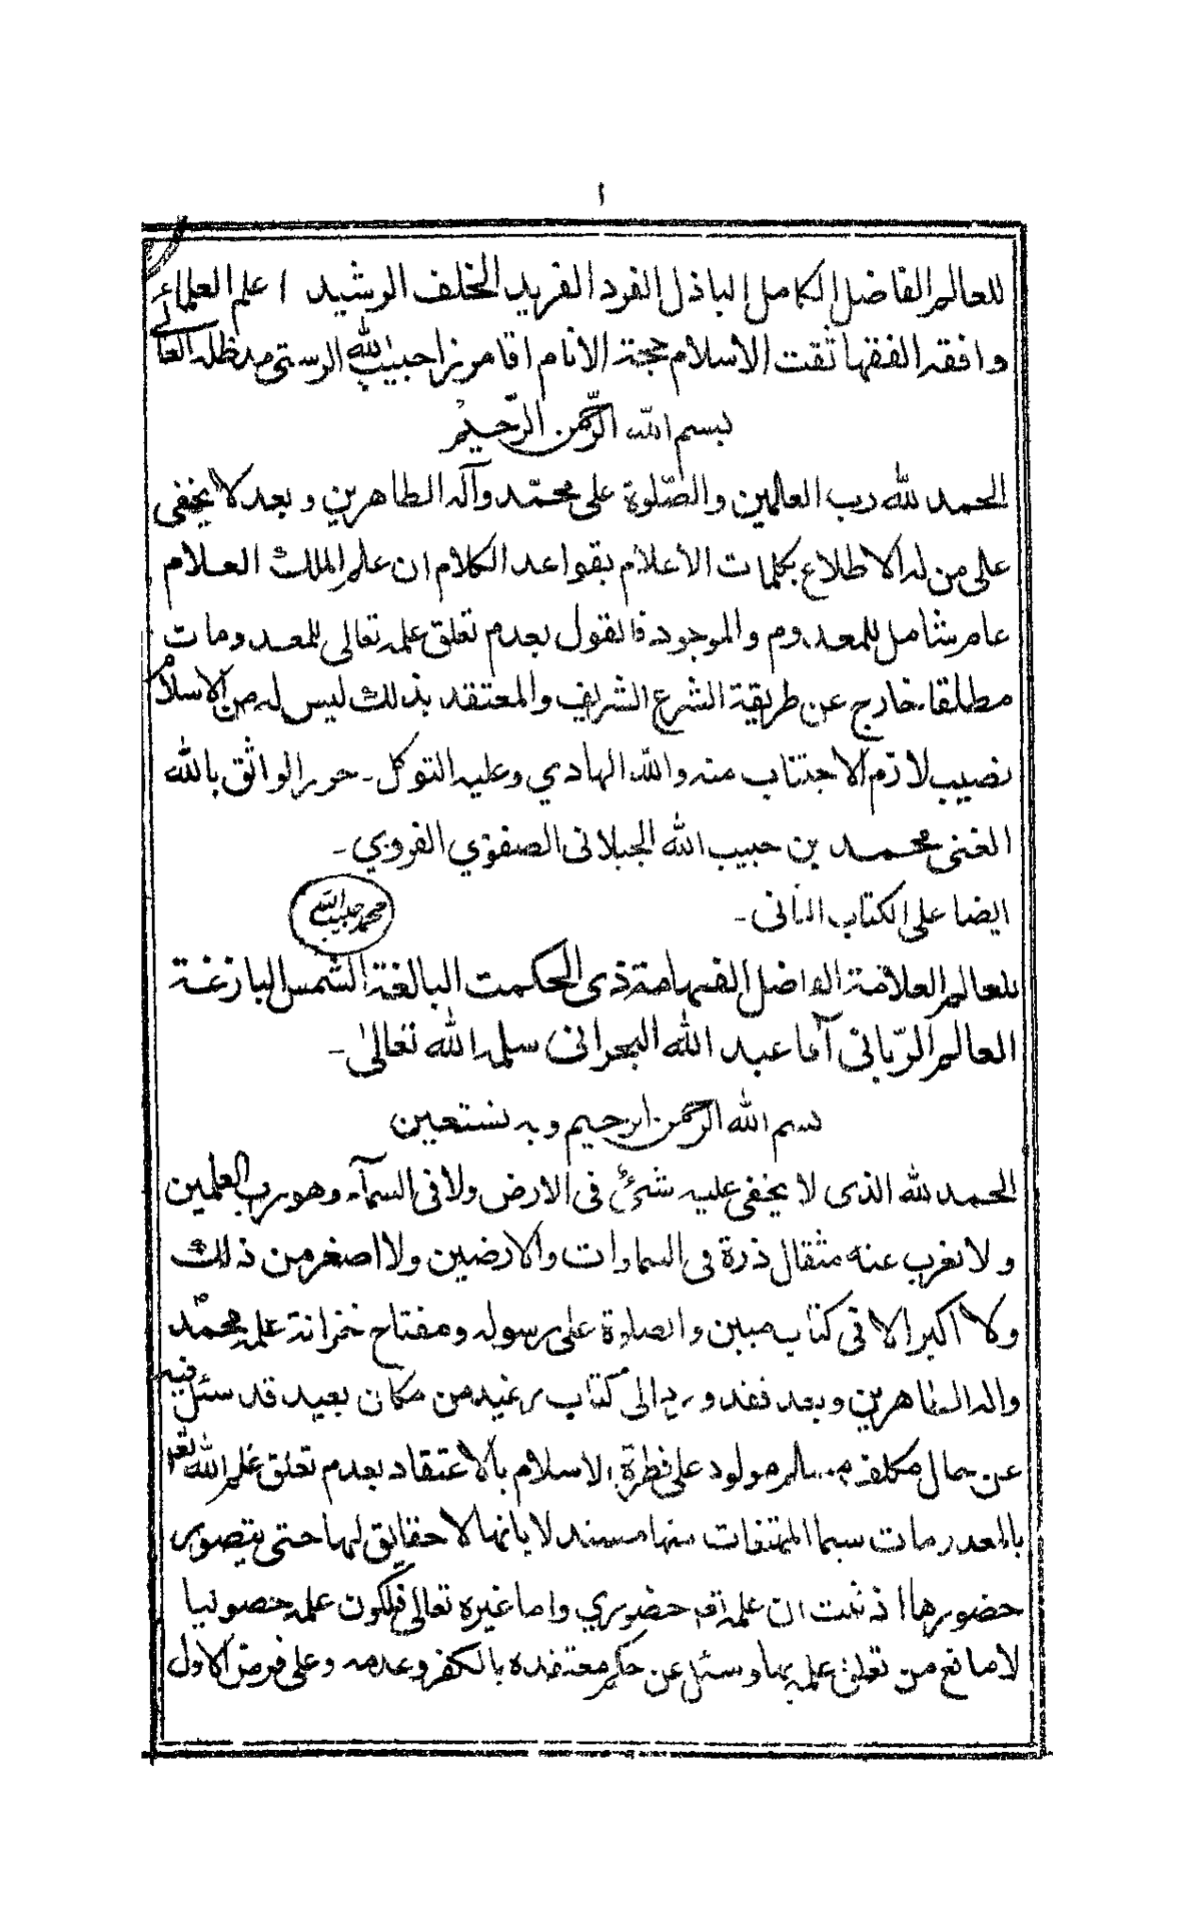 ١
للعالم الفاضل الكامل الباذل الفرد الفريد الخلف الرشيد اعلم العلمائے
وافقه الفقها ثقت الاسلام حجة الانام اقا مرزا حبيب الله الرستى مد ظله العا
بسم الله الرّحمن الرّحيم
الحمد لله رب العالمين والصّلوة على محمّد وآله الطاهرين وبعد لا يخفى
على من له الاطلاع بكلمات الاعلام بقواعد الكلام ان علم الملك العلام
عام شامل للمعدوم والموجود فالقول بعدم تعلق علمه تعالى للمعدومات
مطلقا خارج عن طريقة الشرع الشريف والمعتقد بذلك ليس له من الاسلام
نصيب لازم الاجتناب منه والله الهادي وعليه التوكل ـ حرر الواثق بالله
الغنى محمد بن حبيب الله الجيلانى الصفوي الغروي ـ
محمد حبيب الله
ايضا على الكتاب الثانى ـ
للعالم العلامة الفاضل الفهامة ذى الحكمت البالغة الشمس البازغة
العالم الرّبانى آقا عبد الله البحرانى سلمه الله تعالىٰ ـ
بسم الله الرحمن الرحيم وبه نستعين
الحمد لله الذى لا يخفى عليه شئ فى الارض ولا فى السمآء وهو رب العلمين
ولا يغرب عنه مثقال ذرة فى السماوات والارضين ولا اصغر من ذلك
ولا اكبر الا فى كتاب مبين والصلوة على رسوله ومفتاح خزانة علمه محمّد
واله الطاهرين وبعد فقد ورد الى كتاب من مكان بعيد قد سئل فيه
عن حال مكلف مسلم مولود على فطرة الاسلام بالاعتقاد بعدم تعلق علم الله تعم
بالمعدومات سيما الممتنعات منها مستندلا بانها لا حقايق لها حتى يتصور
حضورها اذ ثبت ان علمه تعم حضوري واما غيره تعالى فلكون علمه حصوليا
لا مانع من تعلق علمه بها وسئل عن حكم معتقده بالكفر وعدمه وعلى فرض الاول